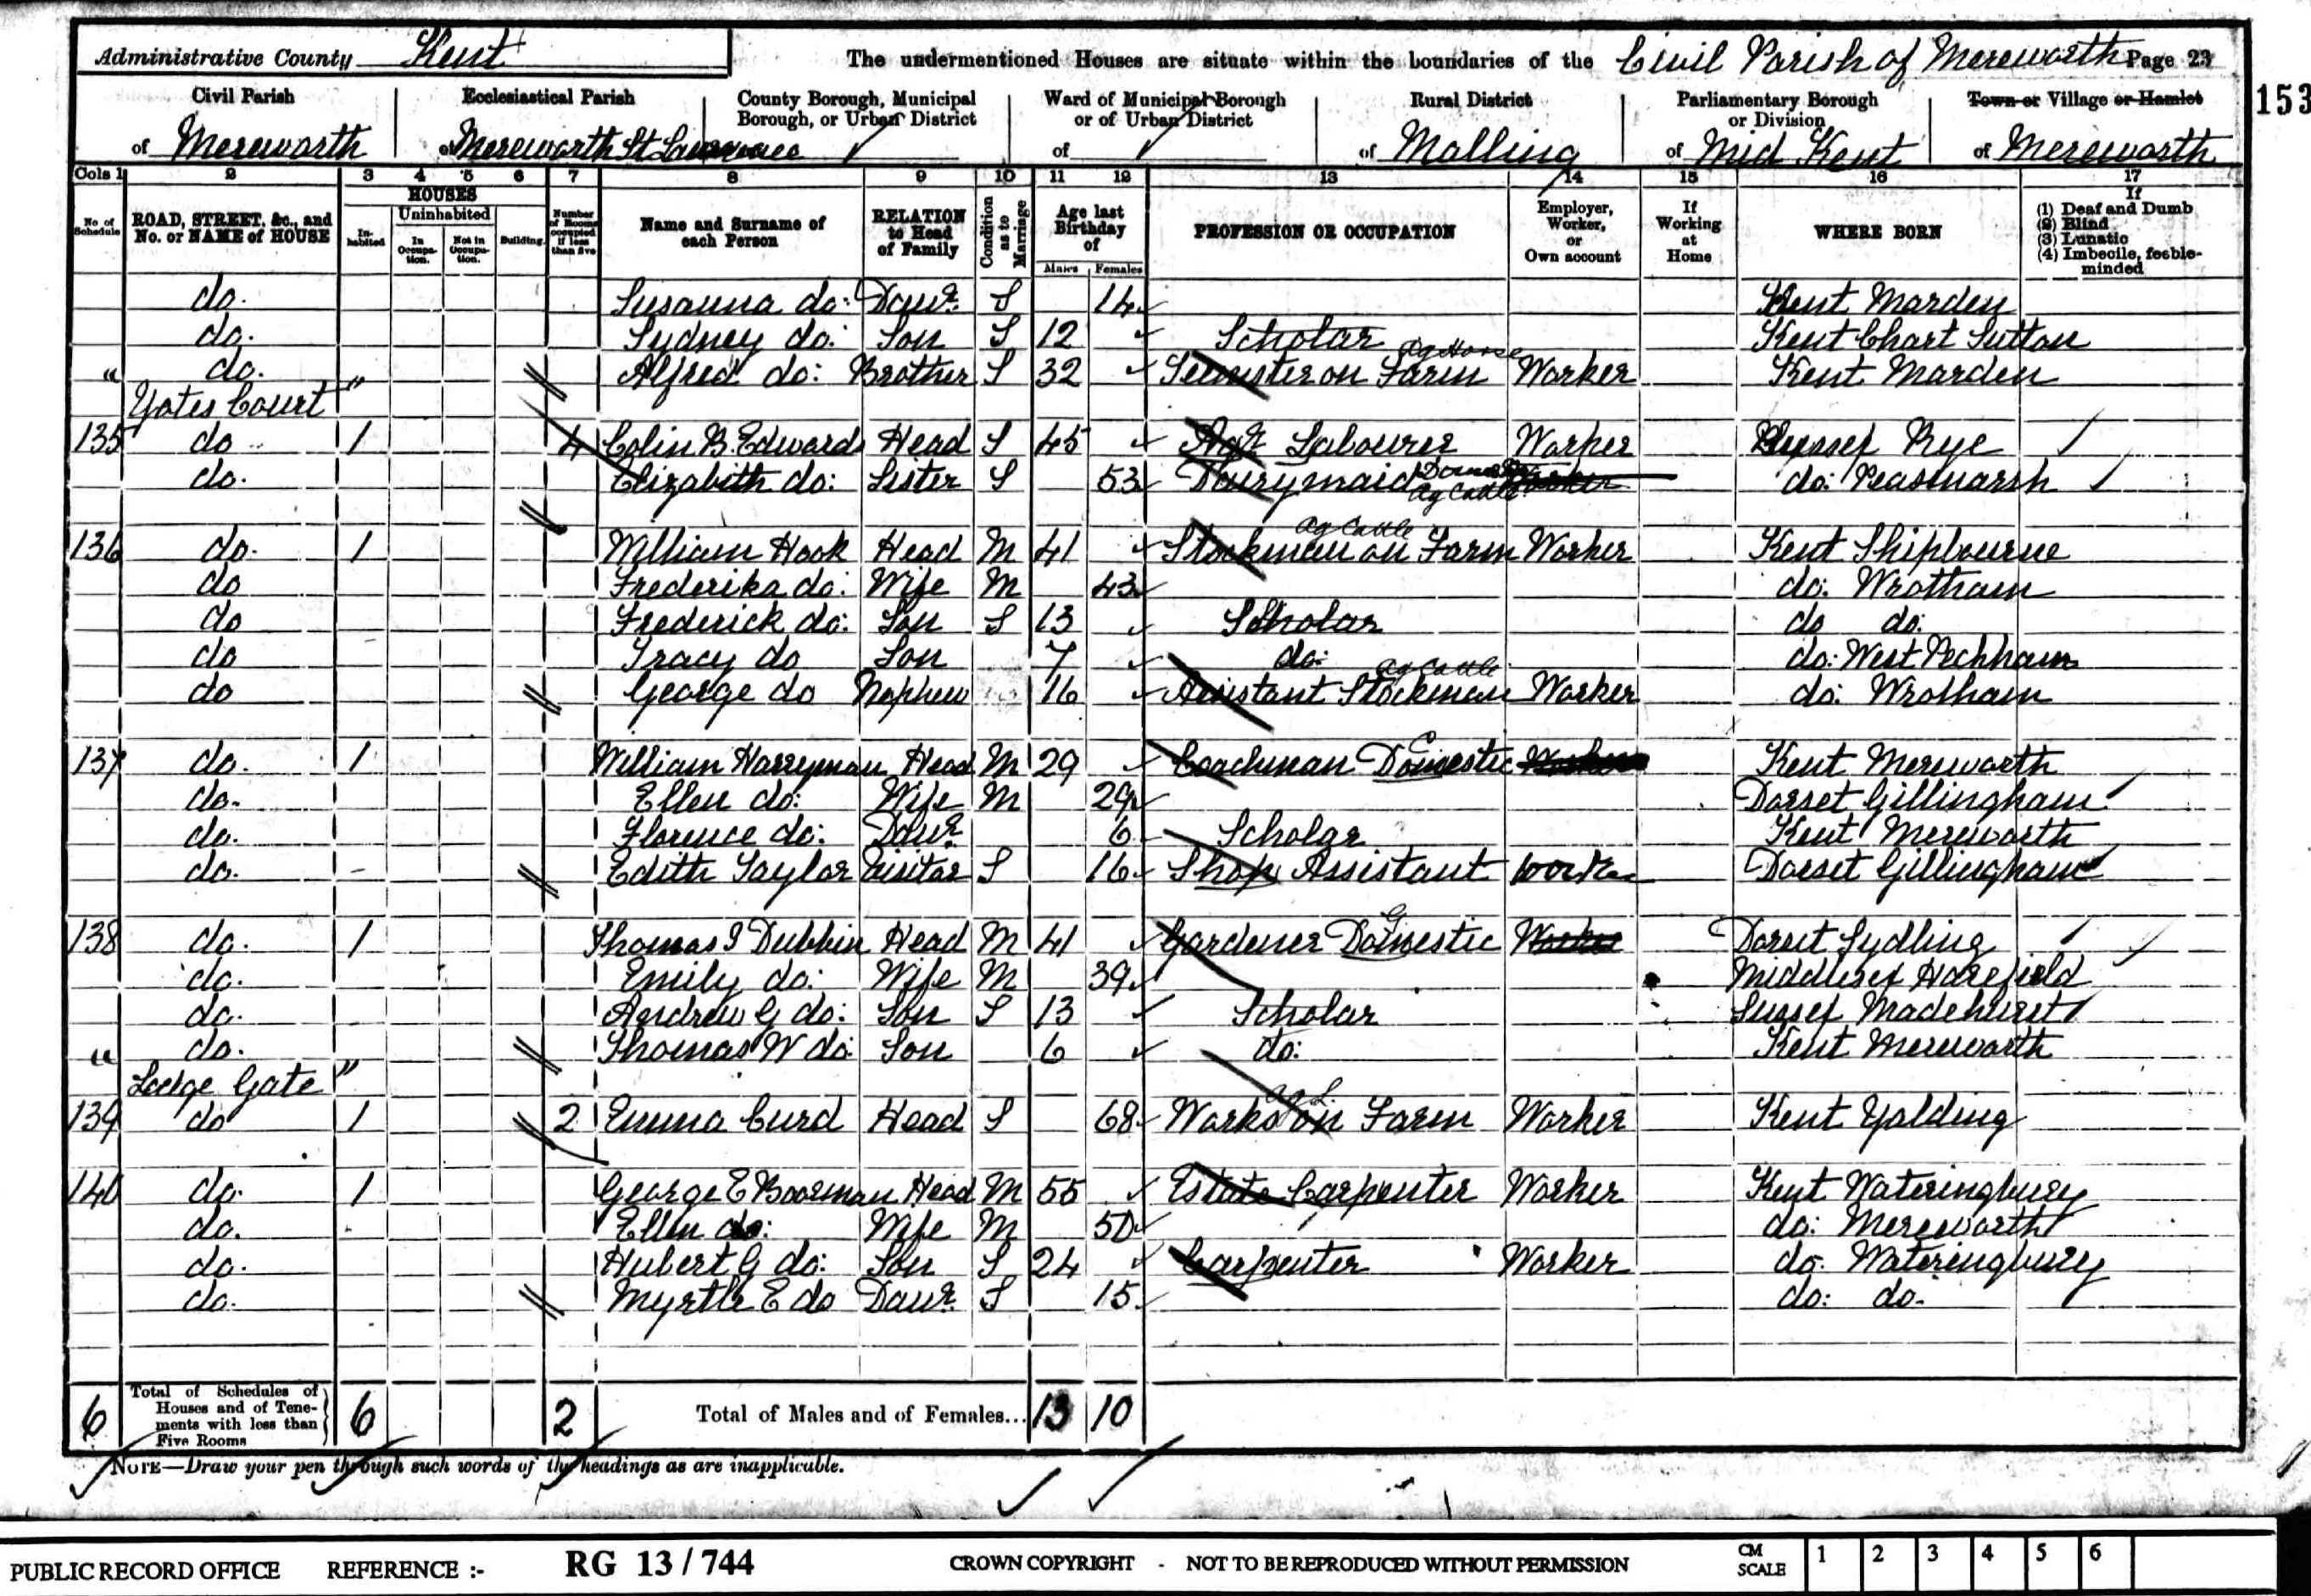 Administrative County Kent The undermentioned Houses are situate within the boundaries of the Civil Parish of Mereworth Page 23
153
Civil Parish Ecclesiastical Parish County Borough, Municipal Borough, or Urban District Ward of Municipal Borough or of Urban District Rural District Parliamentary Borough or Division Town or Village or Hamlet
of Mereworth of Mereworth St Lawrence of of Malling of Mid Kent of Mereworth
Cols 1 2 3 4 5 6 7 8 9 10 11 12 13 14 15 16 17
No. of Schedule ROAD, STREET, &c., and No. or NAME of HOUSE HOUSES In-habited Uninhabited In Occupa-tion. Not in Occupa-tion. Building. Number of Rooms occupied if less than five Name and Surname of each Person RELATION to Head of Family Condition as to Marriage Age last Birthday of Males Females PROFESSION OR OCCUPATION Employer, Worker, or Own account If Working at Home WHERE BORN If (1) Deaf and Dumb (2) Blind (3) Lunatic (4) Imbecile, feeble-minded
do. Susanna do: Daur. S 14 Kent Marden
do. Sydney do: Son S 12 Scholar Kent Chart Sutton
" do. Alfred do: Brother S 32 on Farm ag Horse Worker Kent Marden
Yotes Court "
135 do 1 4 Colin B. Edwards Head S 45 Agr Labourer Worker Sussex Rye
do. Elizabeth do: Sister S 53 Dairymaid Domestic ag Cattle Worker do: Peasmarsh
136 do. 1 William Hook Head M 41 Stockman on Farm ag Cattle Worker Kent Shipbourne
do Frederika do: Wife M 43 do: Wrotham
do Frederick do: Son S 13 Scholar do do:
do Tracy do Son 7 do: do: West Peckham
do George do Nephew 16 Assistant Stockman ag Cattle Worker do: Wrotham
137 do. 1 William Harryman Head M 29 Coachman Domestic Worker Kent Mereworth
do. Ellen do: Wife M 29 Dorset Gillingham
do. Florence do: Daur. 6 Scholar Kent Mereworth
do. Edith Taylor Visitor S 16 Shop Assistant Worker Dorset Gillingham
138 do. 1 Thomas J Dubbin Head M 41 Gardener Domestic G Worker Dorset Sydling
do. Emily do: Wife M 39 Middlesex Harefield
do. Andrew G do: Son S 13 Scholar Sussex Madehurst
" do. Thomas W do: Son 6 do: Kent Mereworth
Lodge Gate "
139 do 1 2 Emma Curd Head S 68 Works on Farm ag L. Worker Kent Yalding
140 do. 1 George E Boorman Head M 55 Estate Carpenter Worker Kent Wateringbury
do. Ellen do: Wife M 50 do: Mereworth
do. Hubert G do: Son S 24 Carpenter Worker do. Wateringbury
do. Myrtle E do Daur. S 15 do: do.
6 Total of Schedules of Houses and of Tenements with less than Five Rooms 6 2 Total of Males and of Females... 13 10
NOTE—Draw your pen through such words of the headings as are inapplicable.
PUBLIC RECORD OFFICE REFERENCE :- RG 13 / 744 CROWN COPYRIGHT - NOT TO BE REPRODUCED WITHOUT PERMISSION CM SCALE 1 2 3 4 5 6